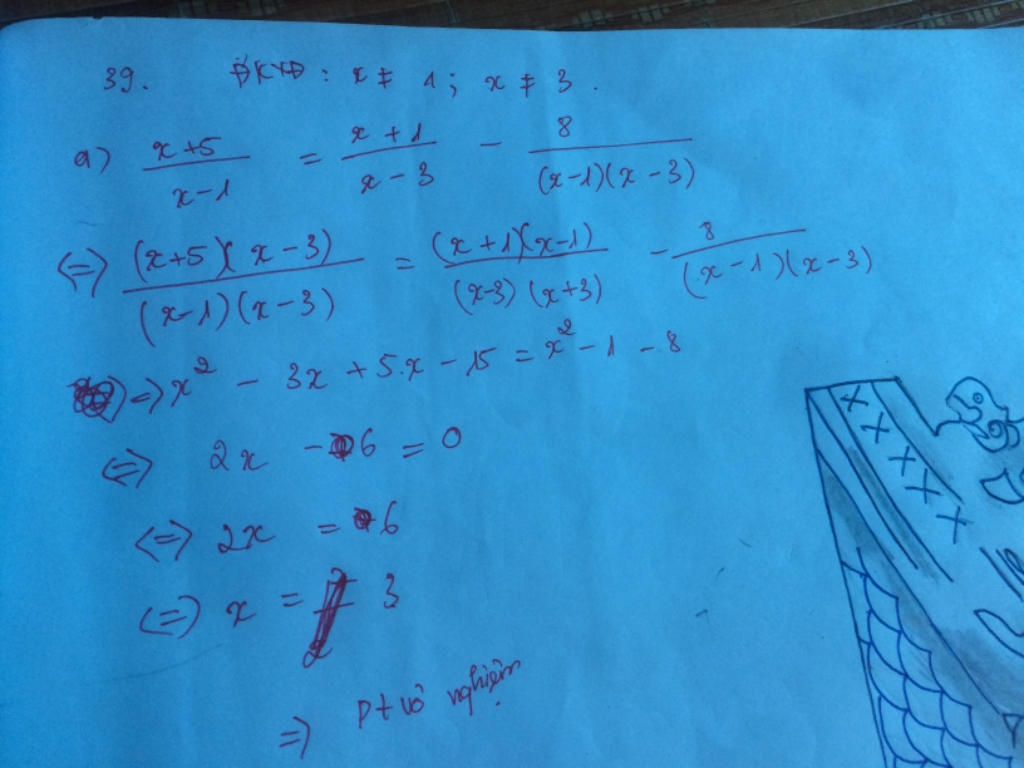 39. ĐKXĐ : x ≠ 1 ; x ≠ 3 .
a) (x+5)/(x-1) = (x+1)/(x-3) - 8/((x-1)(x-3))
(=) ((x+5)(x-3))/((x-1)(x-3)) = ((x+1)(x-1))/((x-3)(x+3)) - 8/((x-1)(x-3))
=) x² - 3x + 5.x - 15 = x² - 1 - 8
(=) 2x - 6 = 0
(=) 2x = 6
(=) x = 3
=) Pt vô nghiệm